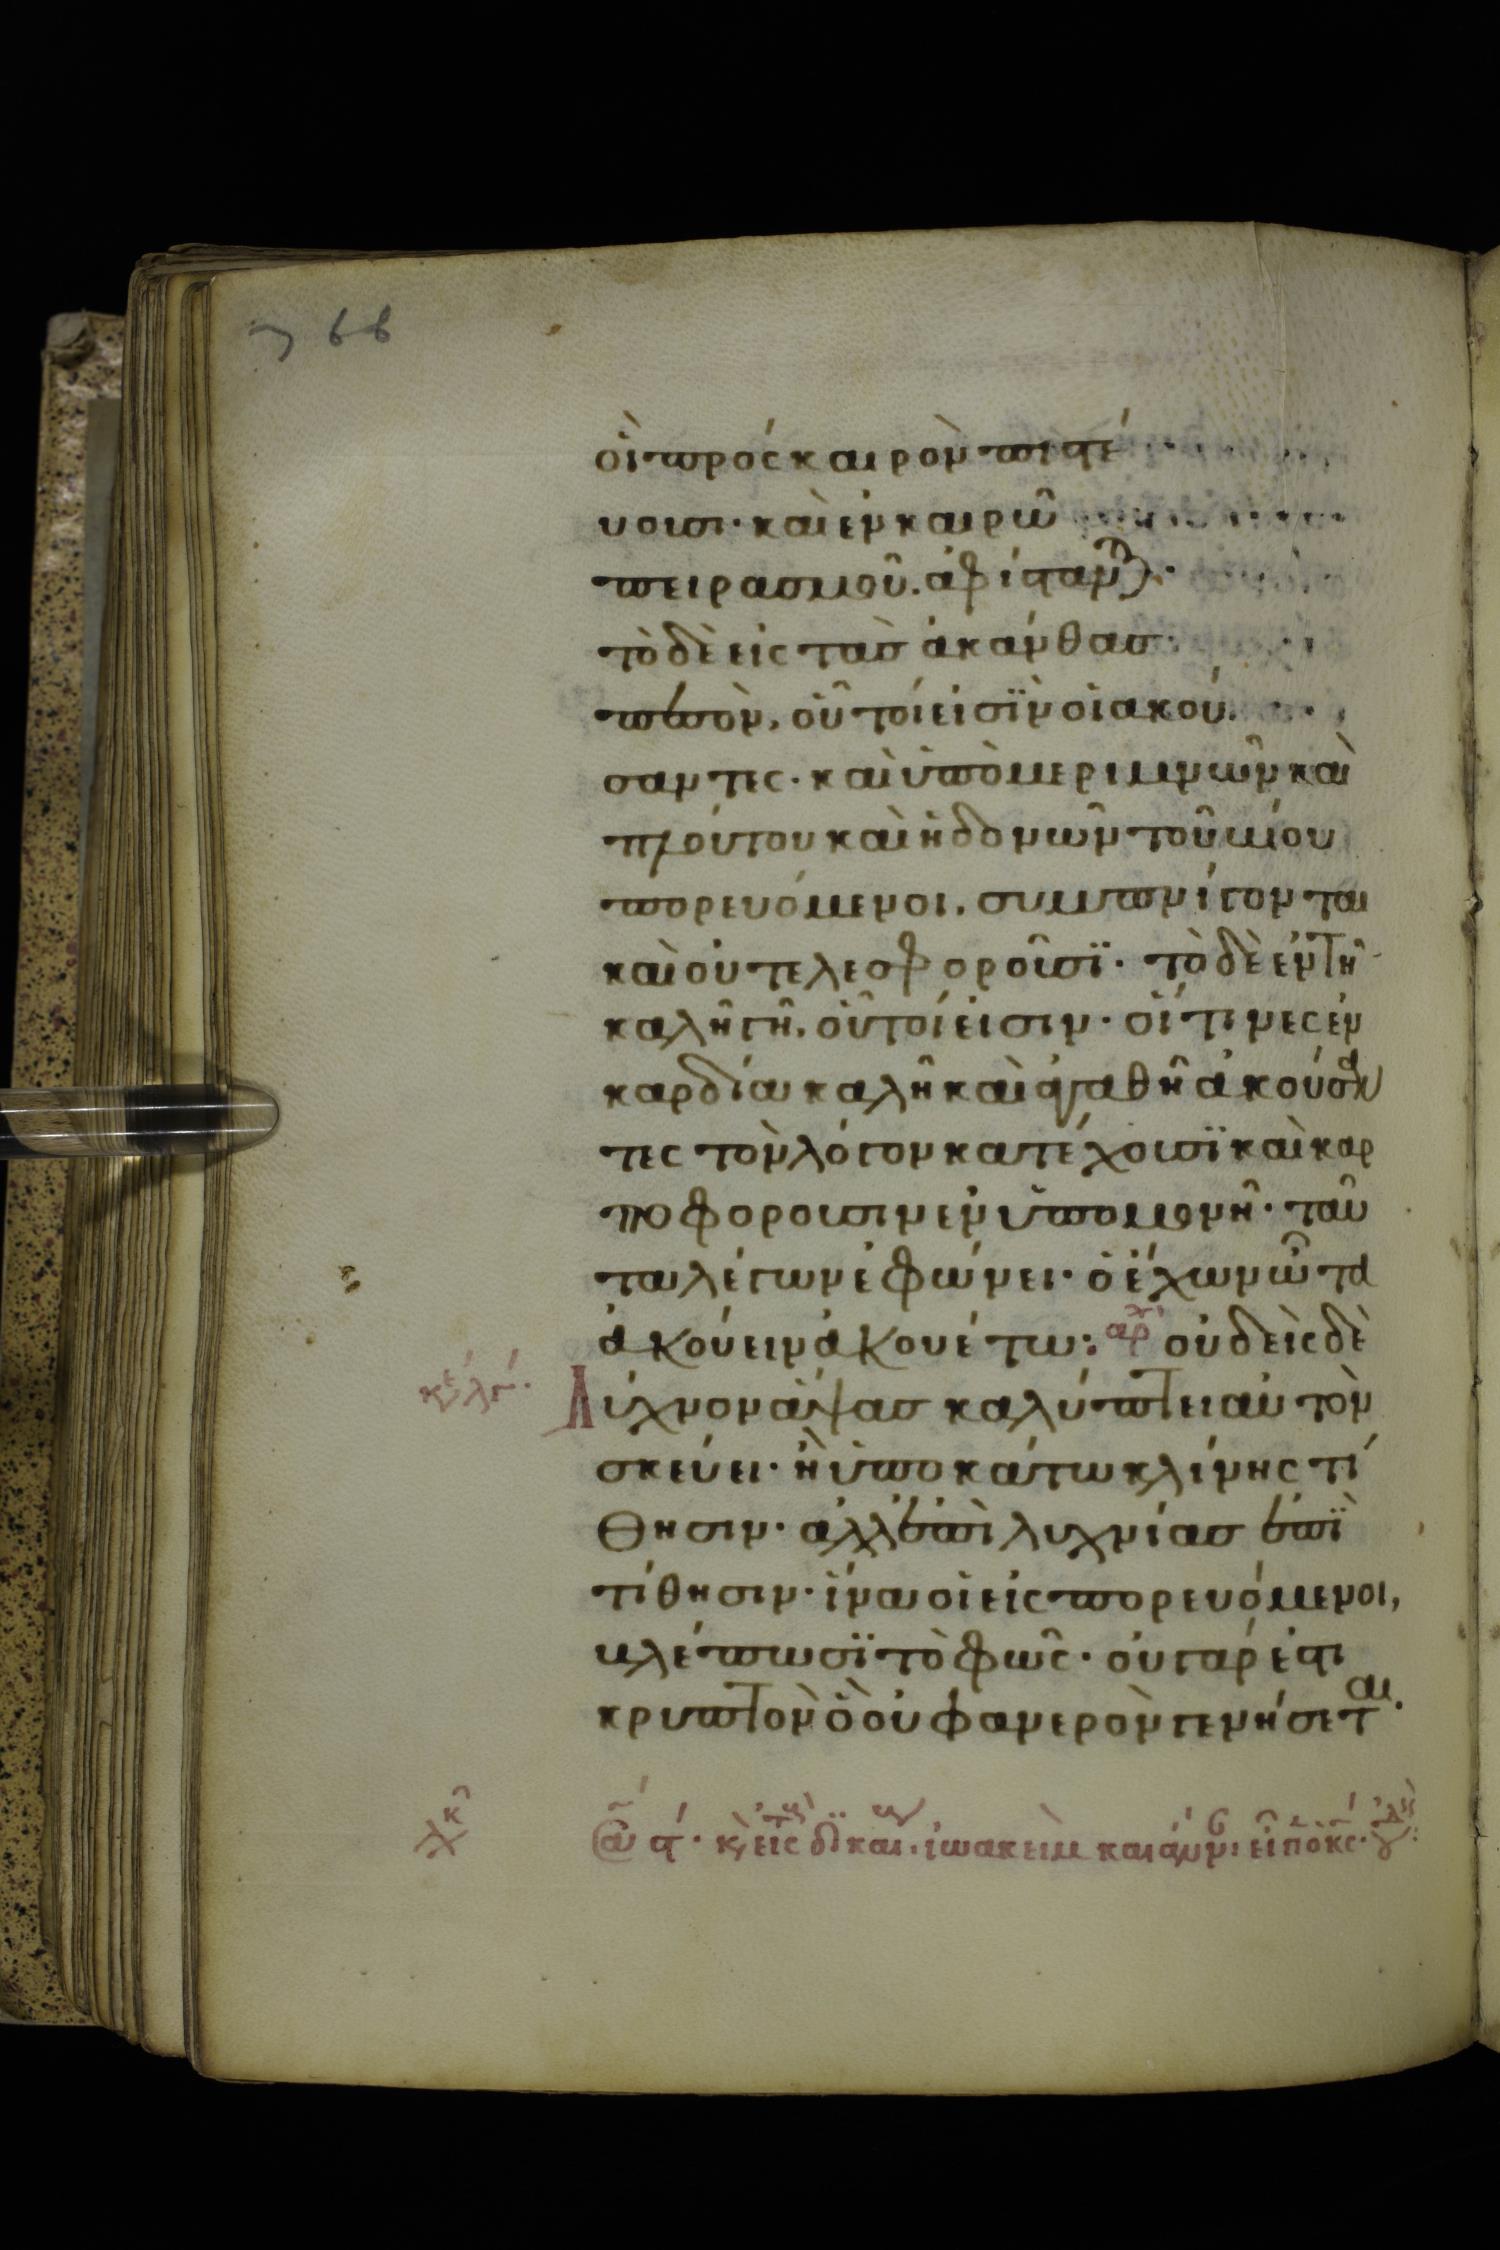 766
οἳ πρὸς καιρὸν πιστέ
υουσι· καὶ ἐν καιρῶ
πειρασμοῦ. ἀφίσταντ(αι)·
τὸ δὲ εἰς τὰς ἀκάνθας
πεσὸν, οὗτοί εἰσϊν οἱ ἀκού
σαντες· καὶ ὑπὸ μεριμνῶν καὶ
πλούτου καὶ ἡδονῶν τοῦ βίου
πορευόμενοι, συμπνίγονται
καὶ οὐ τελεσφοροῦσϊ· τὸ δὲ ἐν τῆ
καλῆ γῆ, οὗτοί εἰσιν· οἵτινες ἐν
καρδία καλῆ καὶ ἀγαθῆ ἀκούσαν
τες τὸν λόγον κατέχουσϊ καὶ καρ
ποφοροῦσιν ἐν ὑπομονῆ· ταῦ
τα λέγων ἐφώνει· ὁ ἔχων ὦτα
ἀκούειν ἀκουέτω: αρ οὐδεὶς δὲ
Λύχνον ἅψας καλύπτει αὐτὸν
σκεύει· ἢ ὑποκάτω κλίνης τί
θησιν· ἀλλ' ἐπὶ λυχνίας ἐπϊ
τίθησιν· ἵνα οἱ εἰσπορευόμενοι,
βλέπωσϊ τὸ φῶς· οὐ γάρ ἐστι
κρυπτὸν ὃ οὐ φανερὸν γενήσεται.